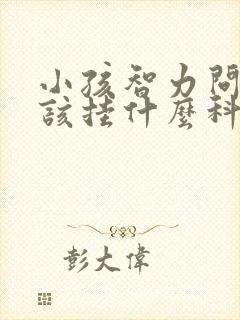 小孩智力問
該挂什麼科
彭大偉